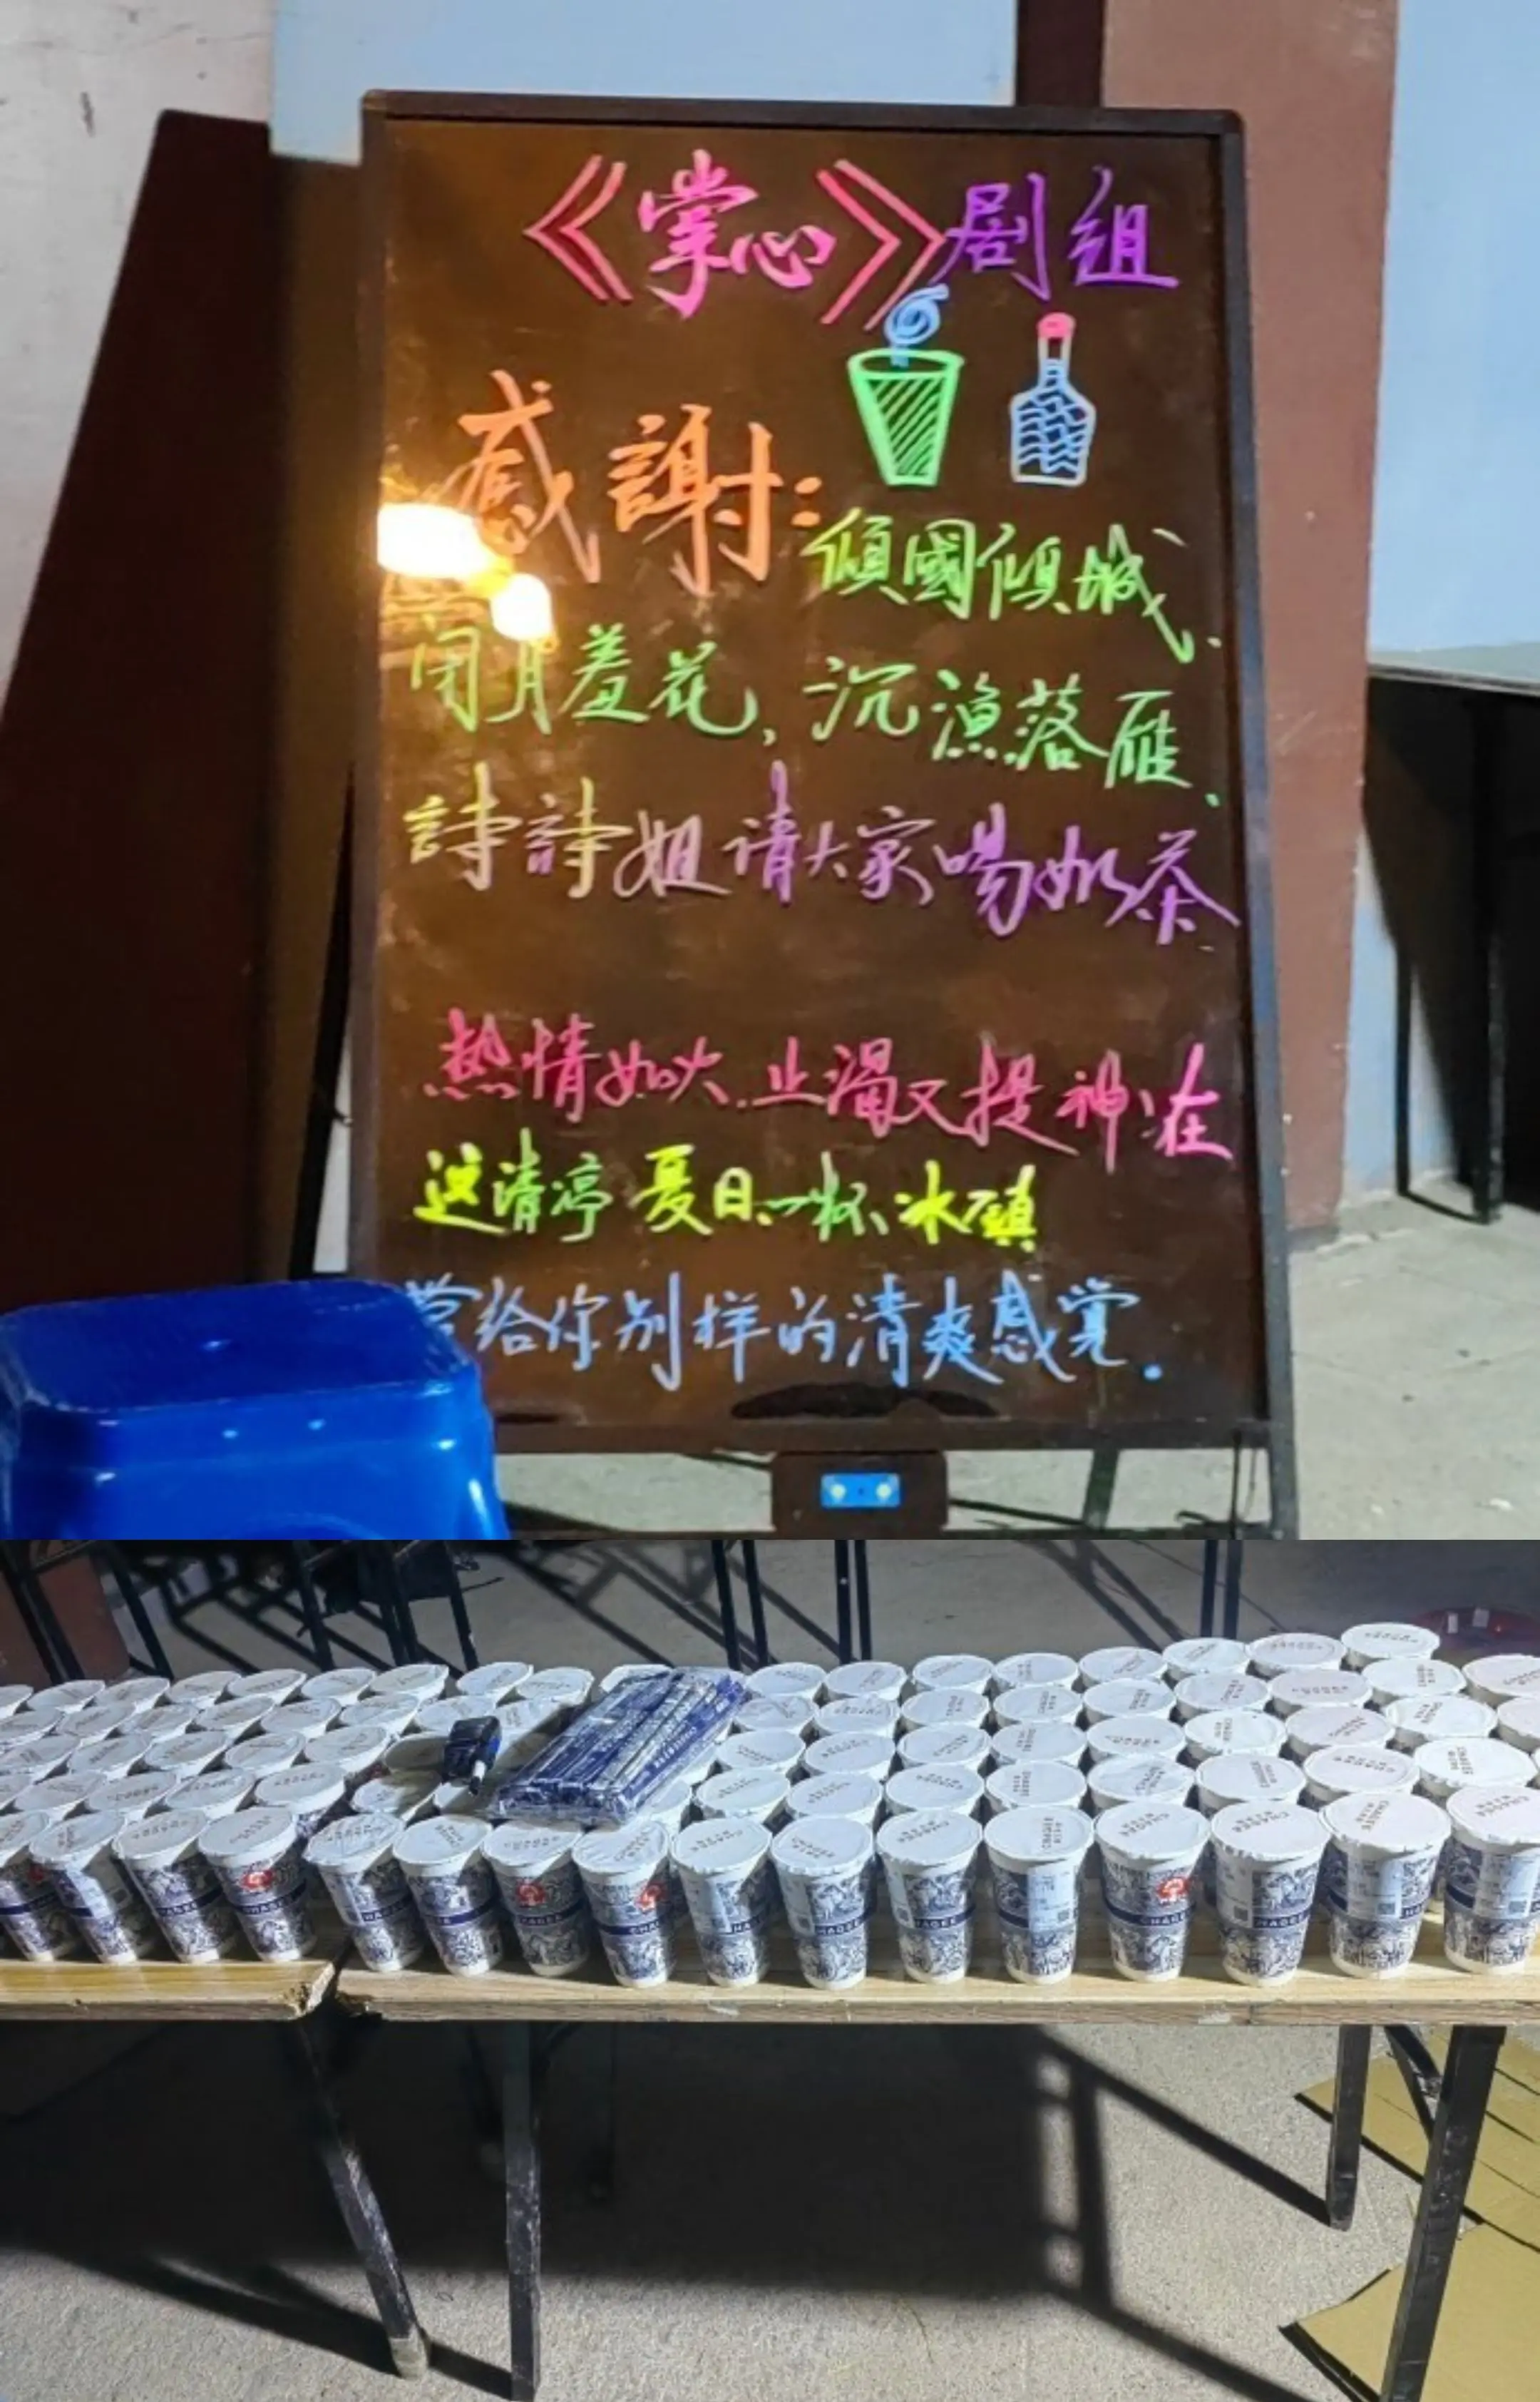 《掌心》剧组
感謝:
傾國傾城、
闭月羞花,沉漁落雁、
詩詩姐请大家喝奶茶
热情如火.止渴又提神.在
这清凉夏日.一杯.冰镇
带给你别样的清爽感觉.
CHAGEE
CHAGEE
CHAGEE